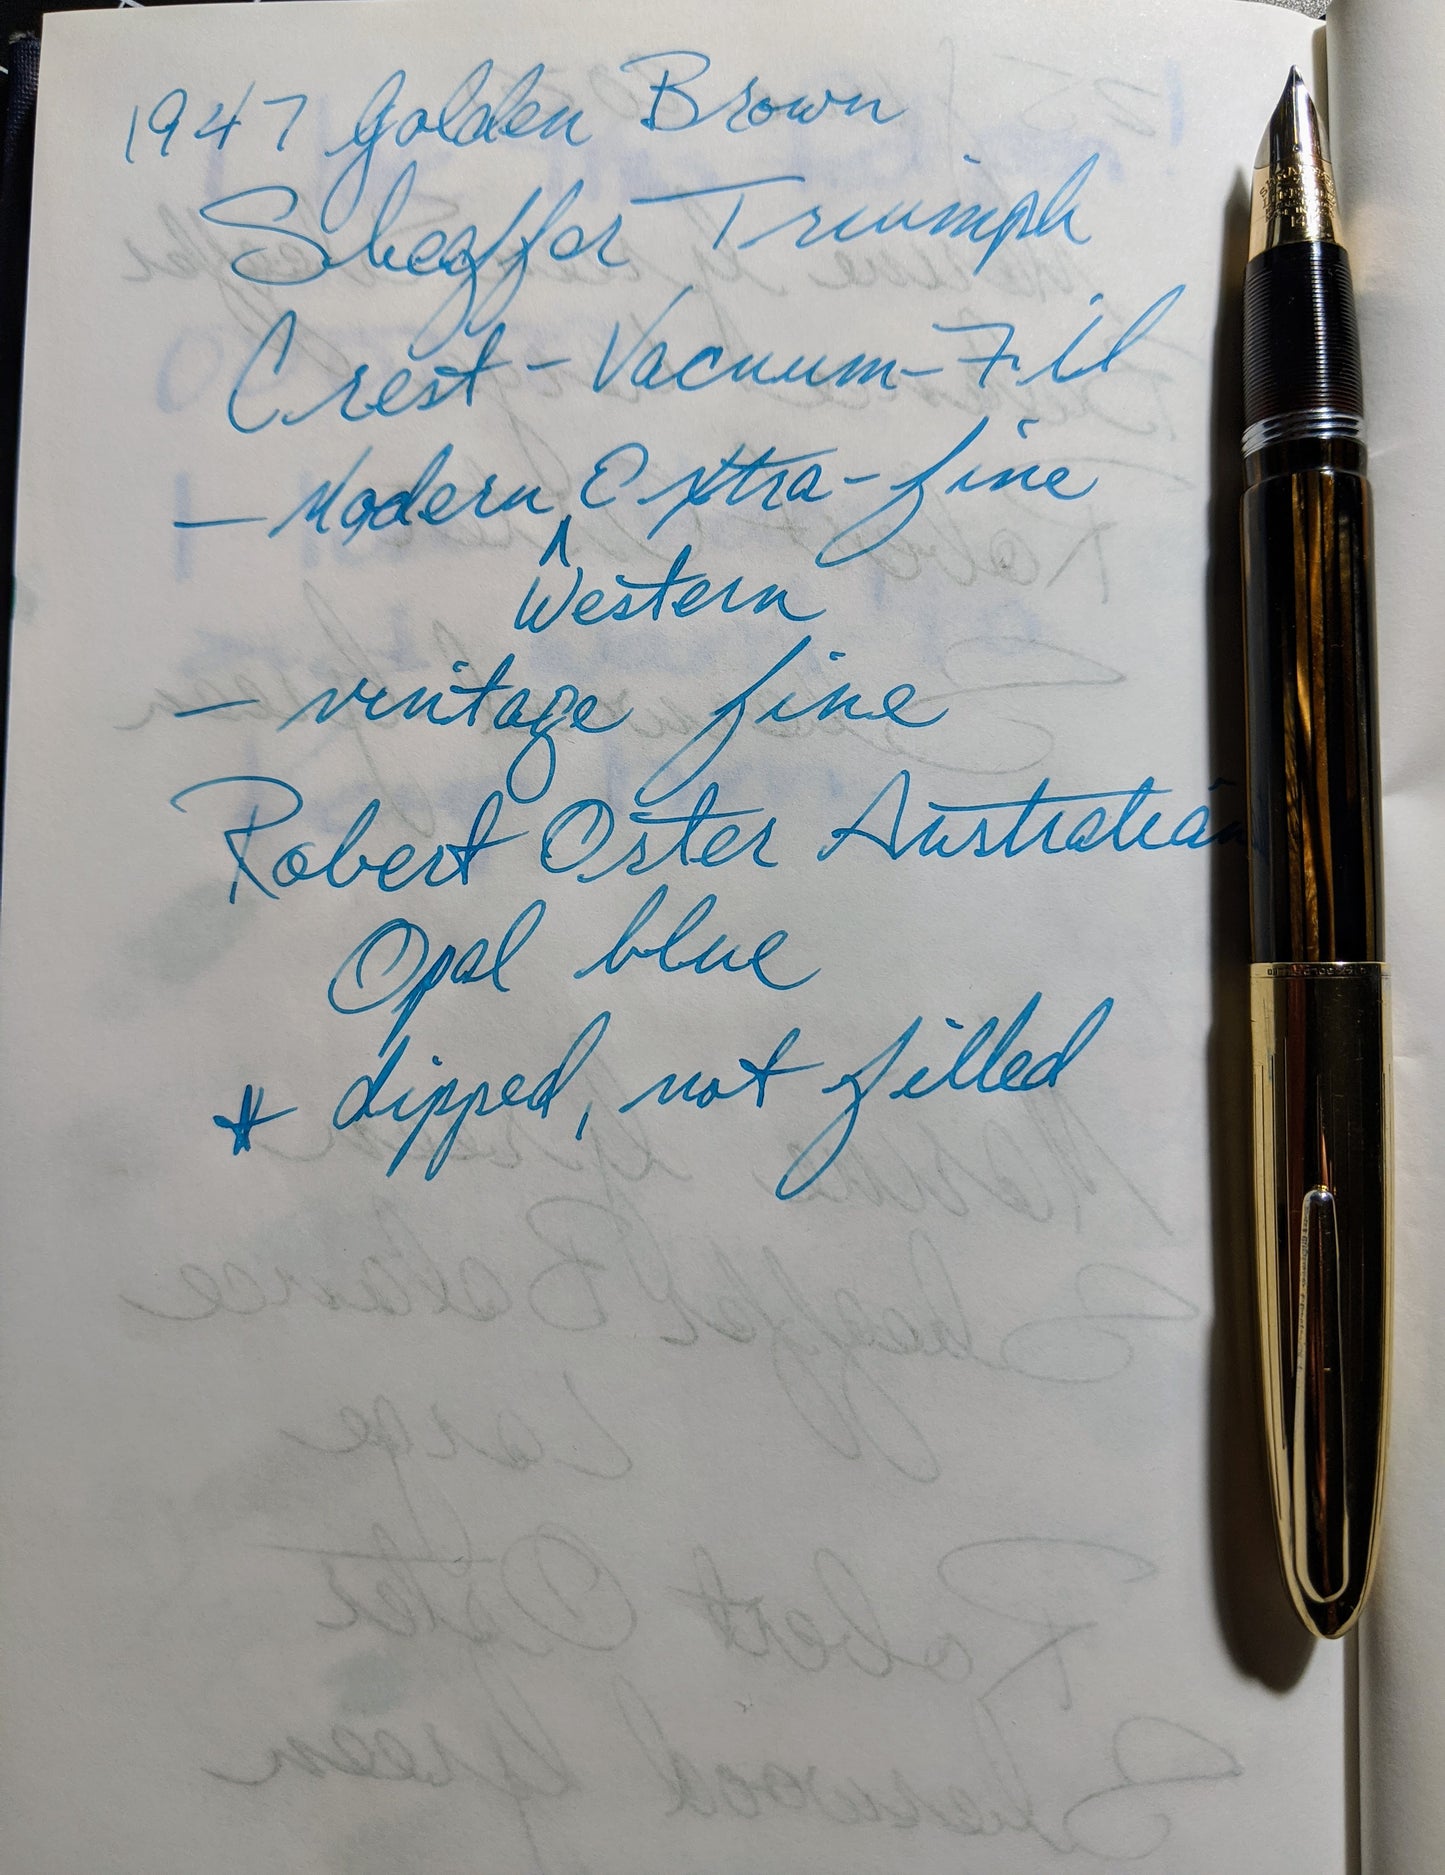 1947 Golden Brown
Sheaffer Triumph
Crest - Vacuum-Fil
- Modern ^ Extra-fine
Western
- vintage fine
Robert Oster Australian
Opal blue
* dipped, not filled